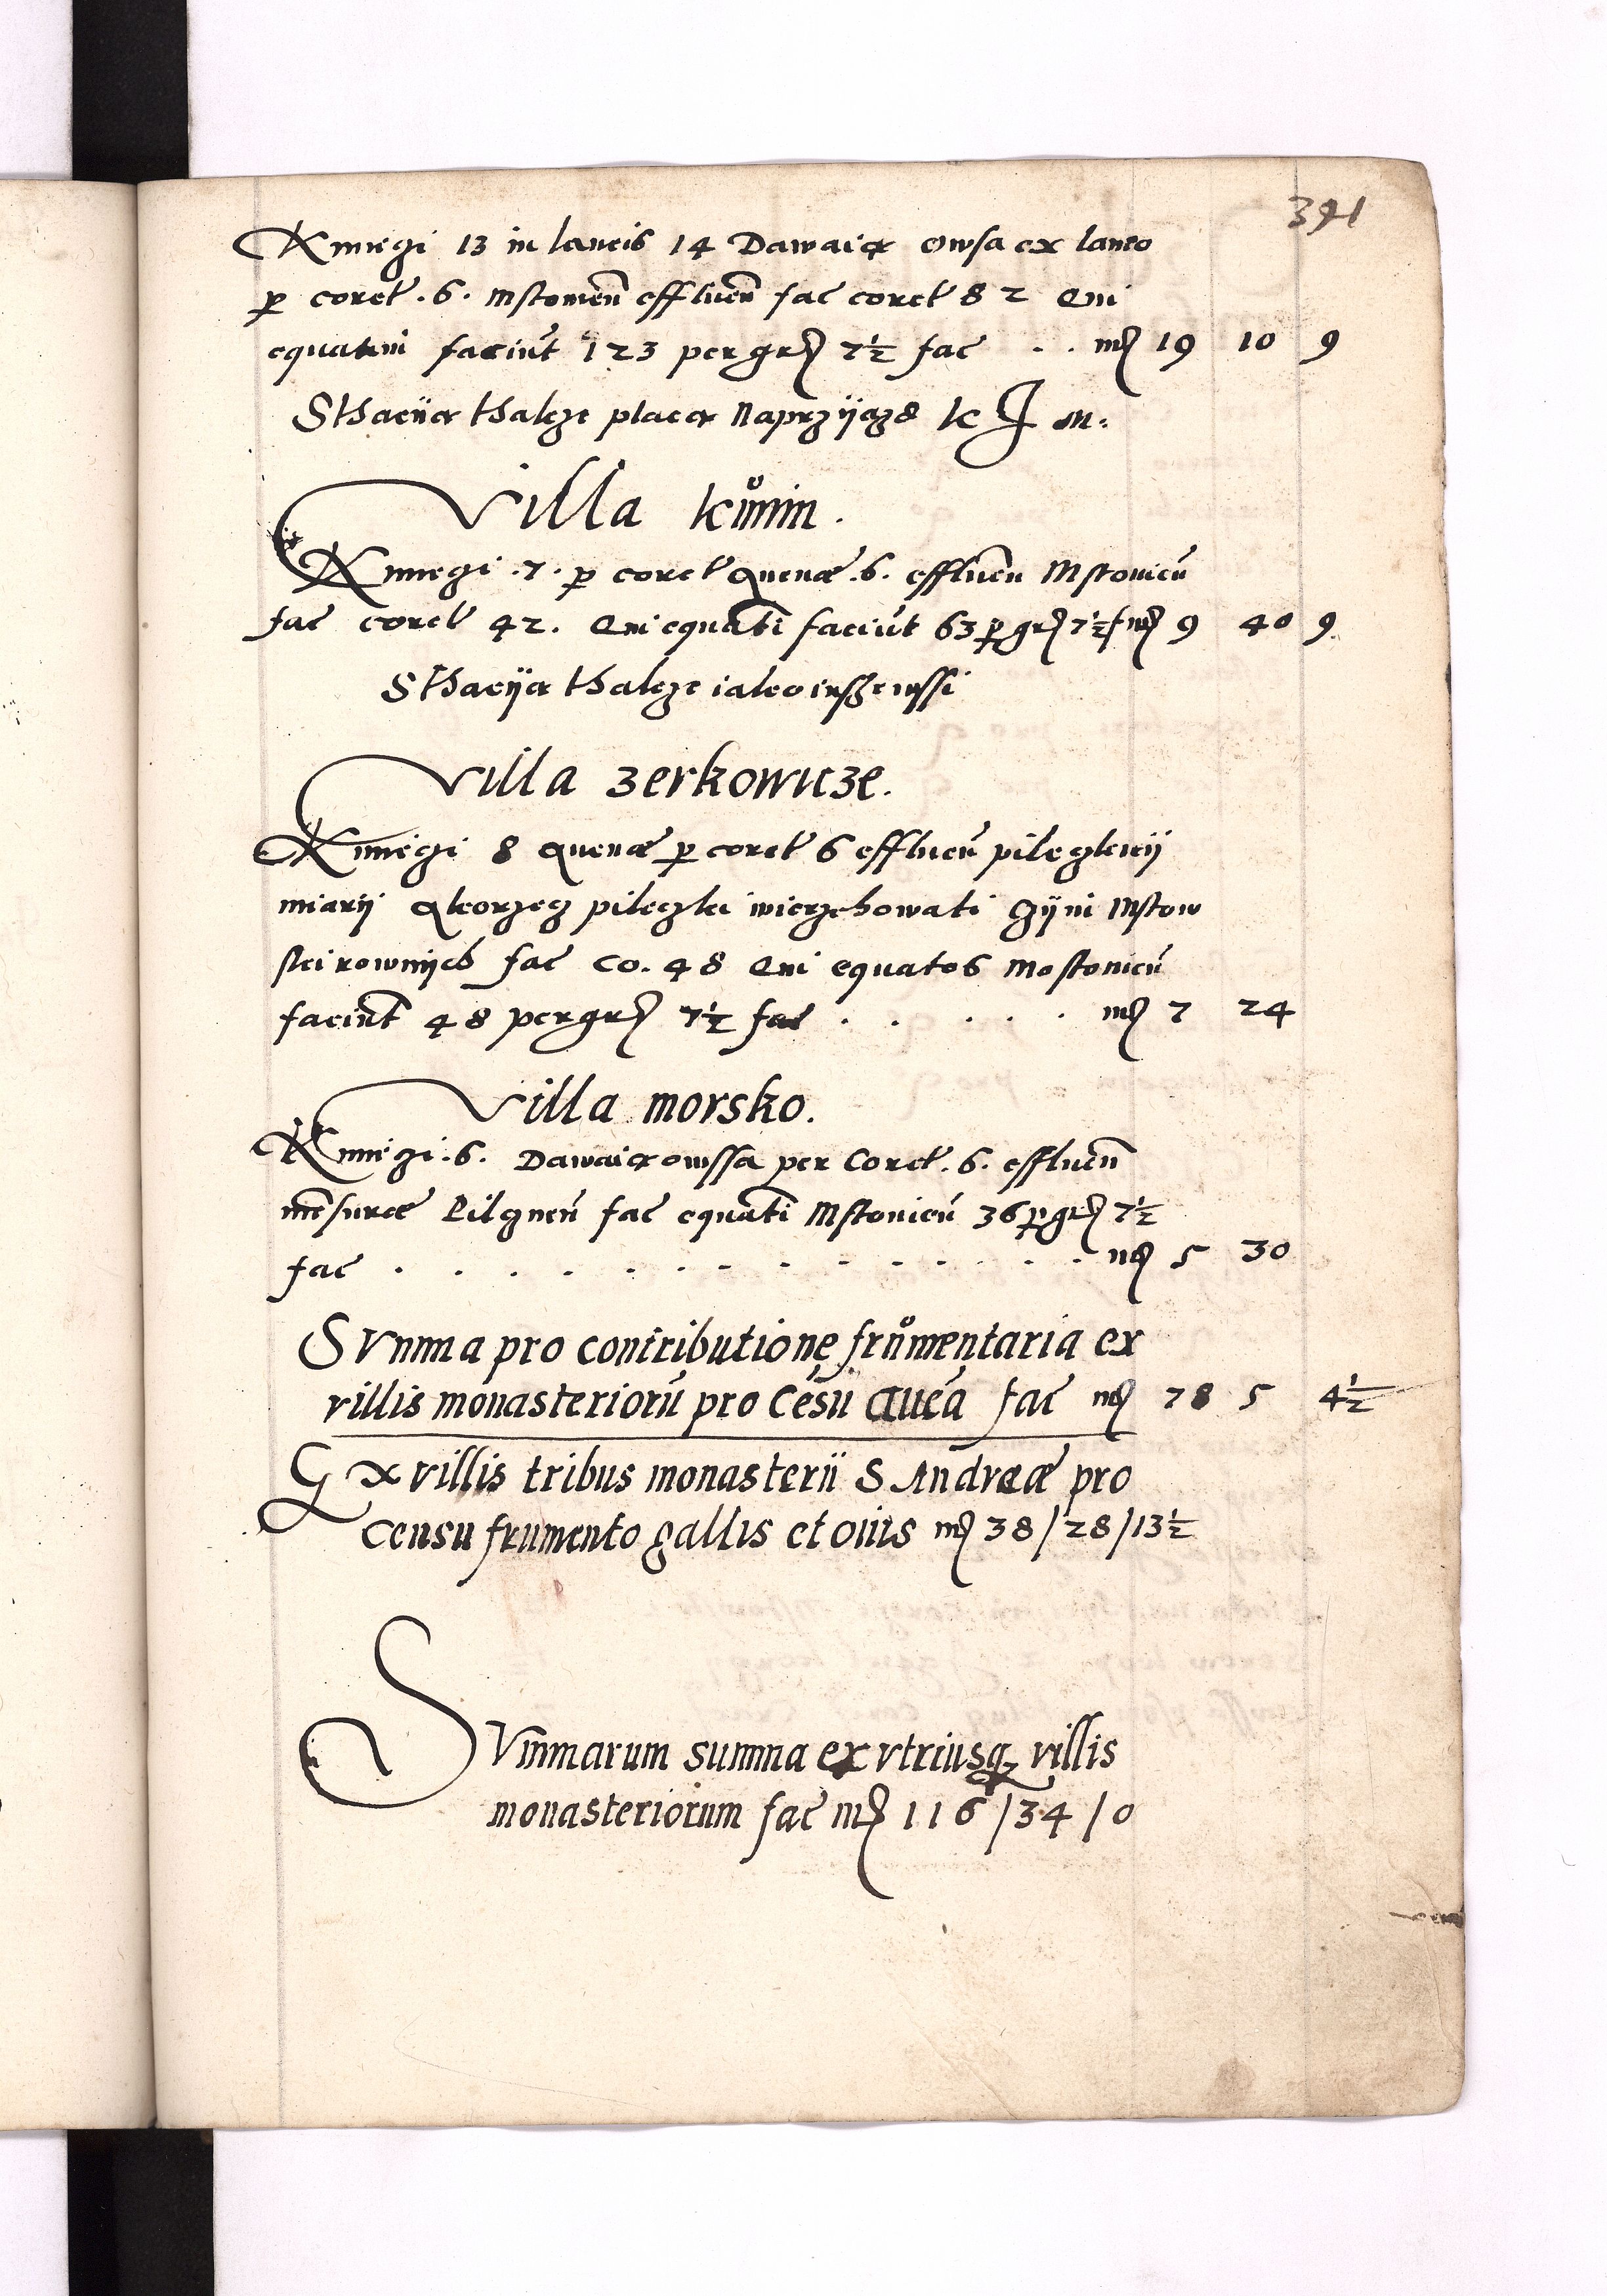 391
Kmiegi 13 in laneis 14 Dawaią Owsa ex laneo
p coret . 6 . Mstouien̄ effluen̄ fac coret 82 Qui
equatim faciūt 123 per gr 7½ fac . . mr 19 10 9
Sthacya thakze placą Naprzyazd K J M:
Villa kůnin .
Kmiegi . 7 . p coret Auenæ . 6 . effluen̄ Mstouien̄
fac coret 42 . Qui equati faciūt 63 p gr 7½ f mr 9 40 9
Sthacya thakze iako inszewssi
Villa zerkowicze.
Kmiegi 8 Auenæ p coret 6 effluen̄ pileczkiey
miary kthorzecz pileczkei wierzchowati czyni Mstow
skei rownych fac Co. 48 Qui equatos Mostouien̄
faciūt 48 per gr 7½ fac . . . . . mr 7 24
Villa morsko.
Kmiegi . 6 . Dawaią owssa per Coret . 6 . effluen̄
mēsuræ Pilcznen̄ fac equati Mstouien̄ 36 p gr 7½
fac . . . . . . . . . . . . . mr 5 30
Summa pro contributione frůmentaria ex
villis monasteriorū pro Cēsu Auēa fac mr 78 5 4½
Ex villis tribus monasterii S. Andreæ pro
Censu frumento gallis et ouis mr 38/28/13½
Summarum summa ex vtriusq villis
monasteriorum fac mr 116/34/0